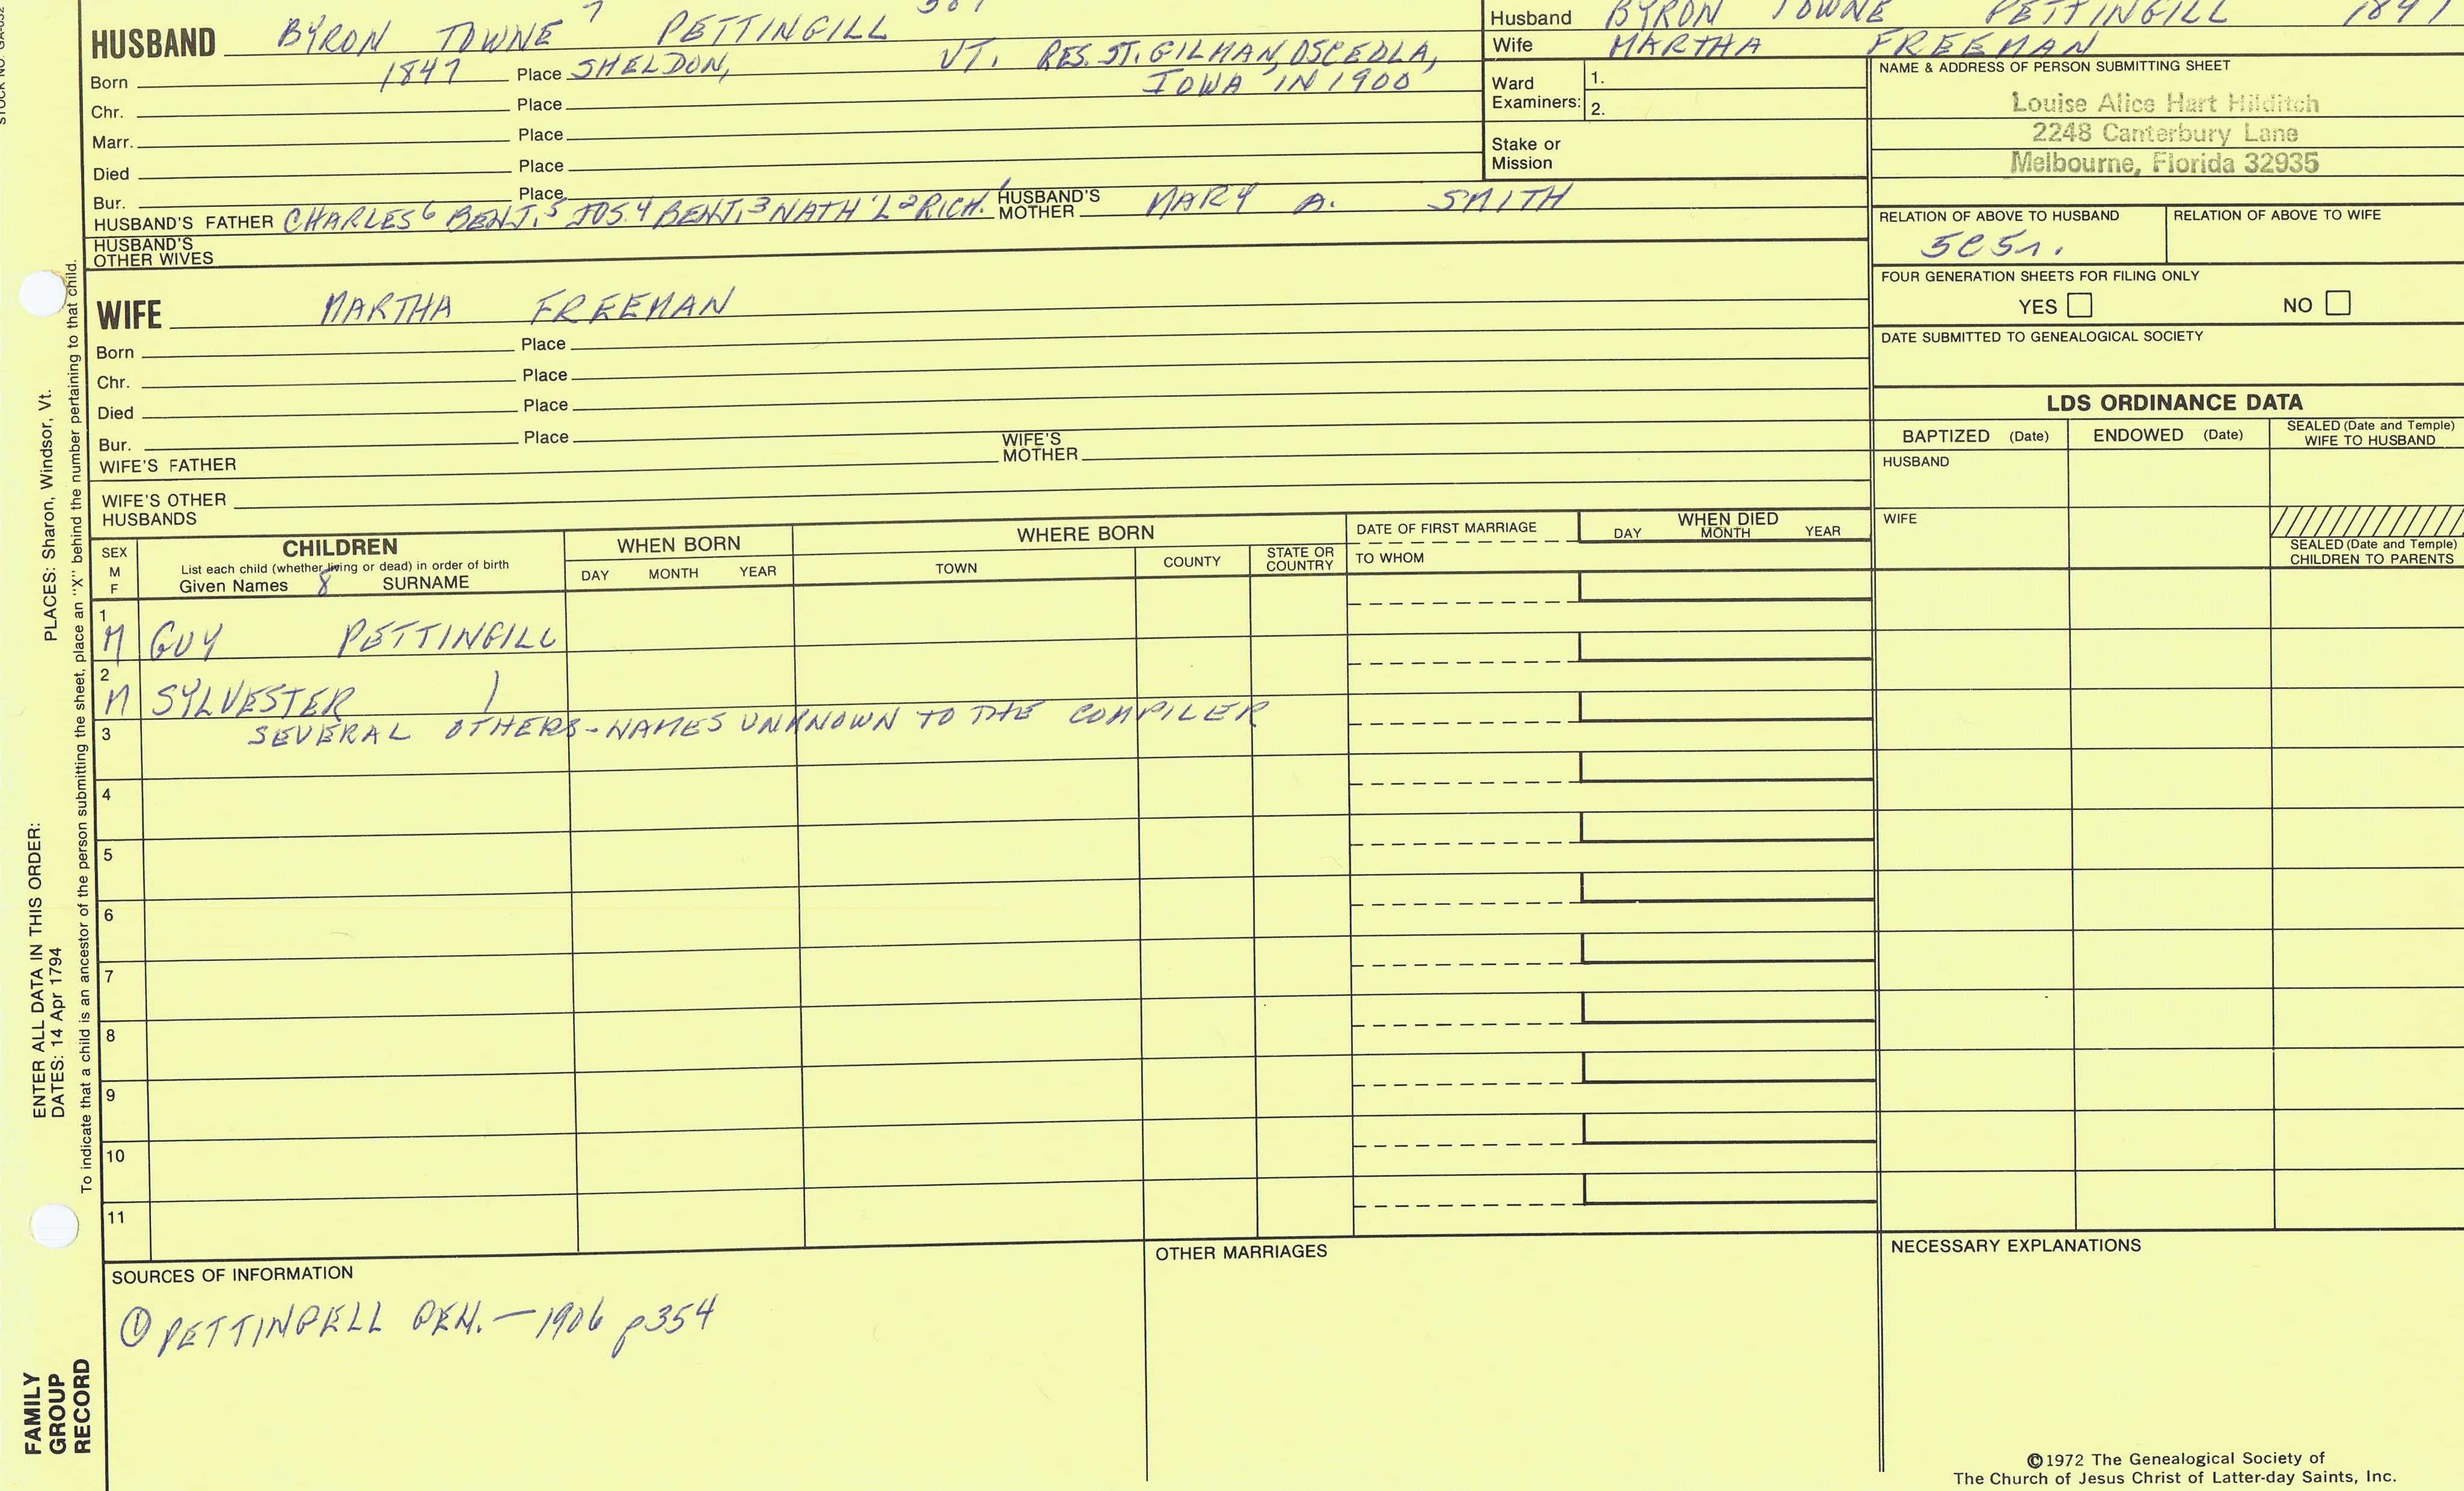 HUSBAND BYRON TOWNE 7 PETTINGILL
Born 1847 Place SHELDON, VT. RES. ST. GILMAN, OSCEOLA,
IOWA IN 1900
Chr. Place
Marr. Place
Died Place
Bur. Place
HUSBAND'S FATHER CHARLES 6 BENJ. 5 JOS. 4 BENJ. 3 NATH'L 2 RICH. 1 HUSBAND'S MOTHER MARY A. SMITH
HUSBAND'S OTHER WIVES
WIFE MARTHA FREEMAN
Born Place
Chr. Place
Died Place
Bur. Place
WIFE'S FATHER WIFE'S MOTHER
WIFE'S OTHER HUSBANDS
Husband BYRON TOWNE PETTINGILL 1847
Wife MARTHA FREEMAN
Ward Examiners: 1.
2.
Stake or Mission
NAME & ADDRESS OF PERSON SUBMITTING SHEET
Louise Alice Hart Hilditch
2248 Canterbury Lane
Melbourne, Florida 32935
RELATION OF ABOVE TO HUSBAND RELATION OF ABOVE TO WIFE
5C5r.
FOUR GENERATION SHEETS FOR FILING ONLY
YES NO
DATE SUBMITTED TO GENEALOGICAL SOCIETY
LDS ORDINANCE DATA
BAPTIZED (Date) ENDOWED (Date) SEALED (Date and Temple) WIFE TO HUSBAND
HUSBAND
WIFE
SEALED (Date and Temple) CHILDREN TO PARENTS
SEX M F
CHILDREN
List each child (whether living or dead) in order of birth
Given Names 8 SURNAME
WHEN BORN
DAY MONTH YEAR
WHERE BORN
TOWN COUNTY STATE OR COUNTRY
DATE OF FIRST MARRIAGE
TO WHOM
WHEN DIED
DAY MONTH YEAR
1 M GUY PETTINGILL
2 M SYLVESTER
3 SEVERAL OTHERS - NAMES UNKNOWN TO THE COMPILER
4
5
6
7
8
9
10
11
SOURCES OF INFORMATION
① PETTINGELL GEN. — 1906 p354
OTHER MARRIAGES
NECESSARY EXPLANATIONS
©1972 The Genealogical Society of
The Church of Jesus Christ of Latter-day Saints, Inc.
ENTER ALL DATA IN THIS ORDER:
DATES: 14 Apr 1794 PLACES: Sharon, Windsor, Vt.
To indicate that a child is an ancestor of the person submitting the sheet, place an "X" behind the number pertaining to that child.
FAMILY
GROUP
RECORD